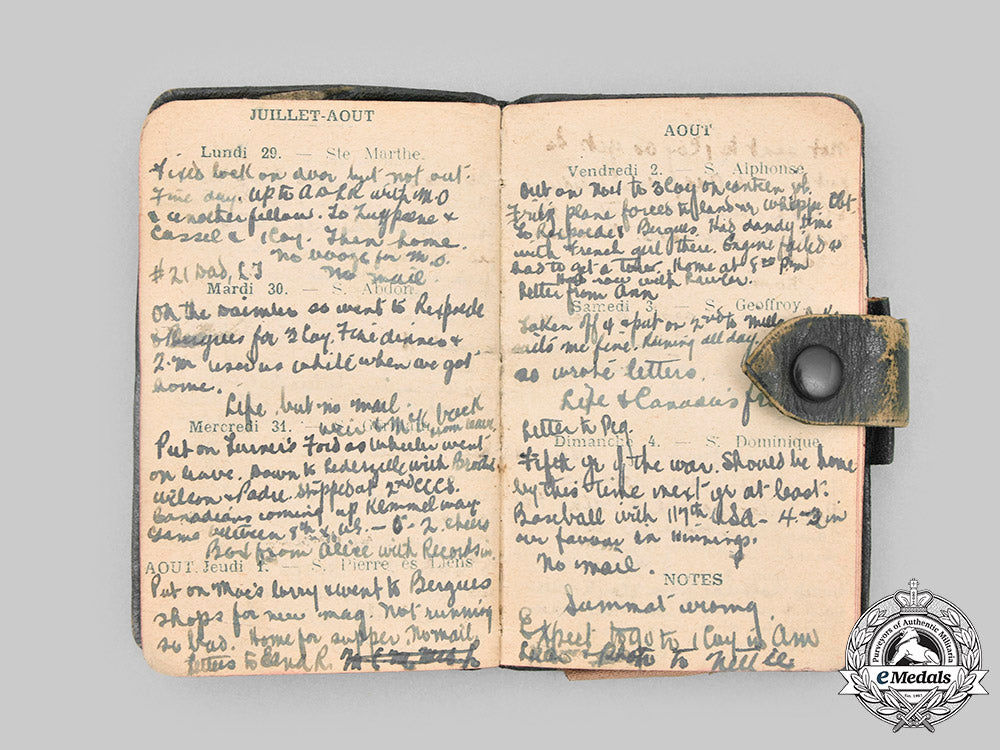 JUILLET-AOUT
Lundi 29. — Ste Marthe.
Fixed lock on door but not out.
Fine day. Up to A D L R with M.O
& another fellow. To &
Cassel & 1 Coy. Then home.
No booze for M.O.
#21 Dad, L J No mail.
Mardi 30. — S. Abdon.
On the so went to Rexpoede
& Bergues for 3 Coy. Fine dinner &
2.M used us white when we got
home.
Life but no mail.
Weir & Mick back
from leave
Mercredi 31. —
Put on Turner's Ford as Wheeler went
on leave. Down to Lederzeele with Brother
Wilson & Padre. Stopped at 2nd CCCS.
Canadians coming up Kemmel way
Game between 8th & us. — 0 - 2 cheers
Box from Alice with Records in.
AOUT. Jeudi 1. — S. Pierre ès Liens
Put on Mac's lorry & went to Bergues
shops for new mag. Not running
so bad. Home for supper. No mail
Letters to E and R.
AOUT
Vendredi 2. — S. Alphonse
Out on to 3 Coy on canteen
plane forced to land
To Rexpoede & Bergues. Had dandy time
with French girl there. Engine failed &
had to get a tower. Home at 5 30 Pm
Had row with
Letter from Ann
Samedi 3. — S. Geoffroy
Taken off 4 & put on 2nd to
suits me fine. Raining all day
so wrote letters.
Life & Canada's
Letter to Peg.
Dimanche 4. — S. Dominique
Fifth yr of the war. Should be home
by this time next yr at least.
Baseball with 117th USA - 4-3 in
our favour in innings.
No mail.
NOTES
Summat wrong
Expect to go to 1 Coy in Am
to Nellie
Purveyors of Authentic Militaria
eMedals